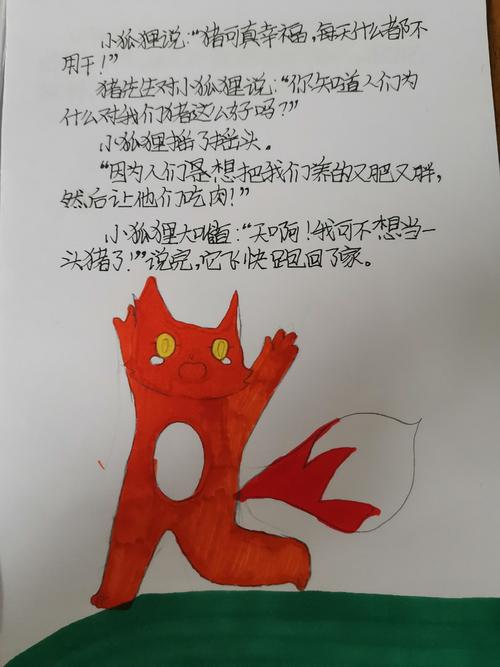 小狐狸说:“猪可真幸福,每天什么都不
用干!”
猪先生对小狐狸说:“你知道人们为
什么对我们猪这么好吗?”
小狐狸摇了摇头。
“因为人们是想把我们养的又肥又胖,
然后让他们吃肉!”
小狐狸大喊道:“天啊!我可不想当一
头猪了!”说完,它飞快跑回了家。